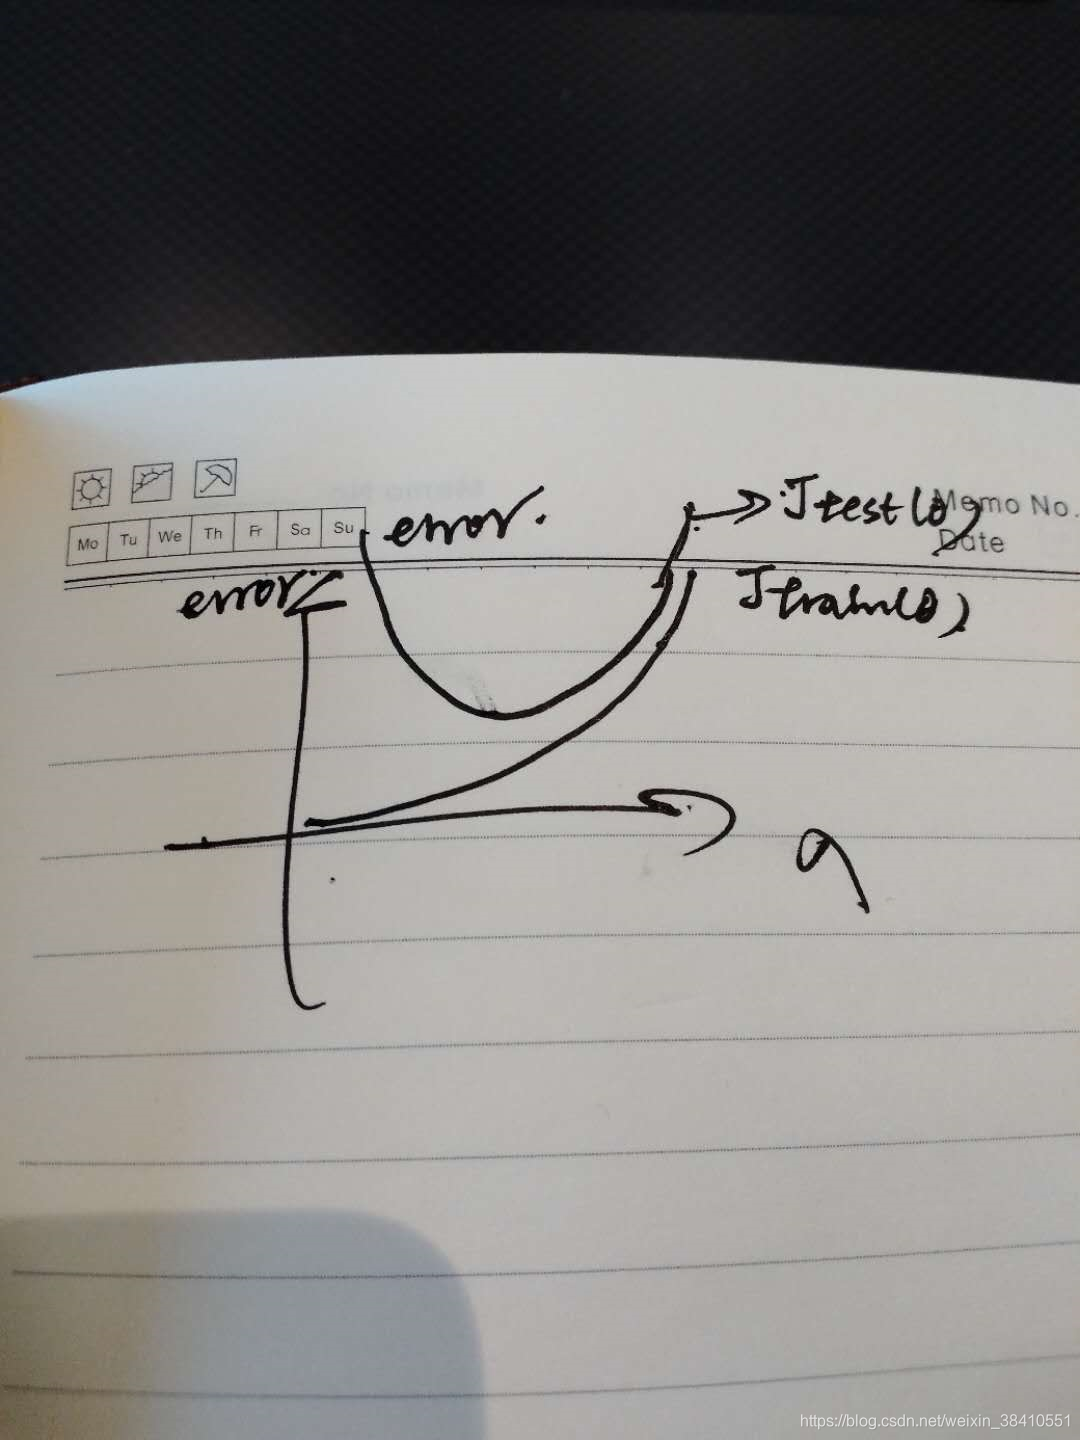 Memo No.
Date
Mo Tu We Th Fr Sa Su
error.
Jtest(θ)
error
Jtrain(θ)
a
https://blog.csdn.net/weixin_38410551